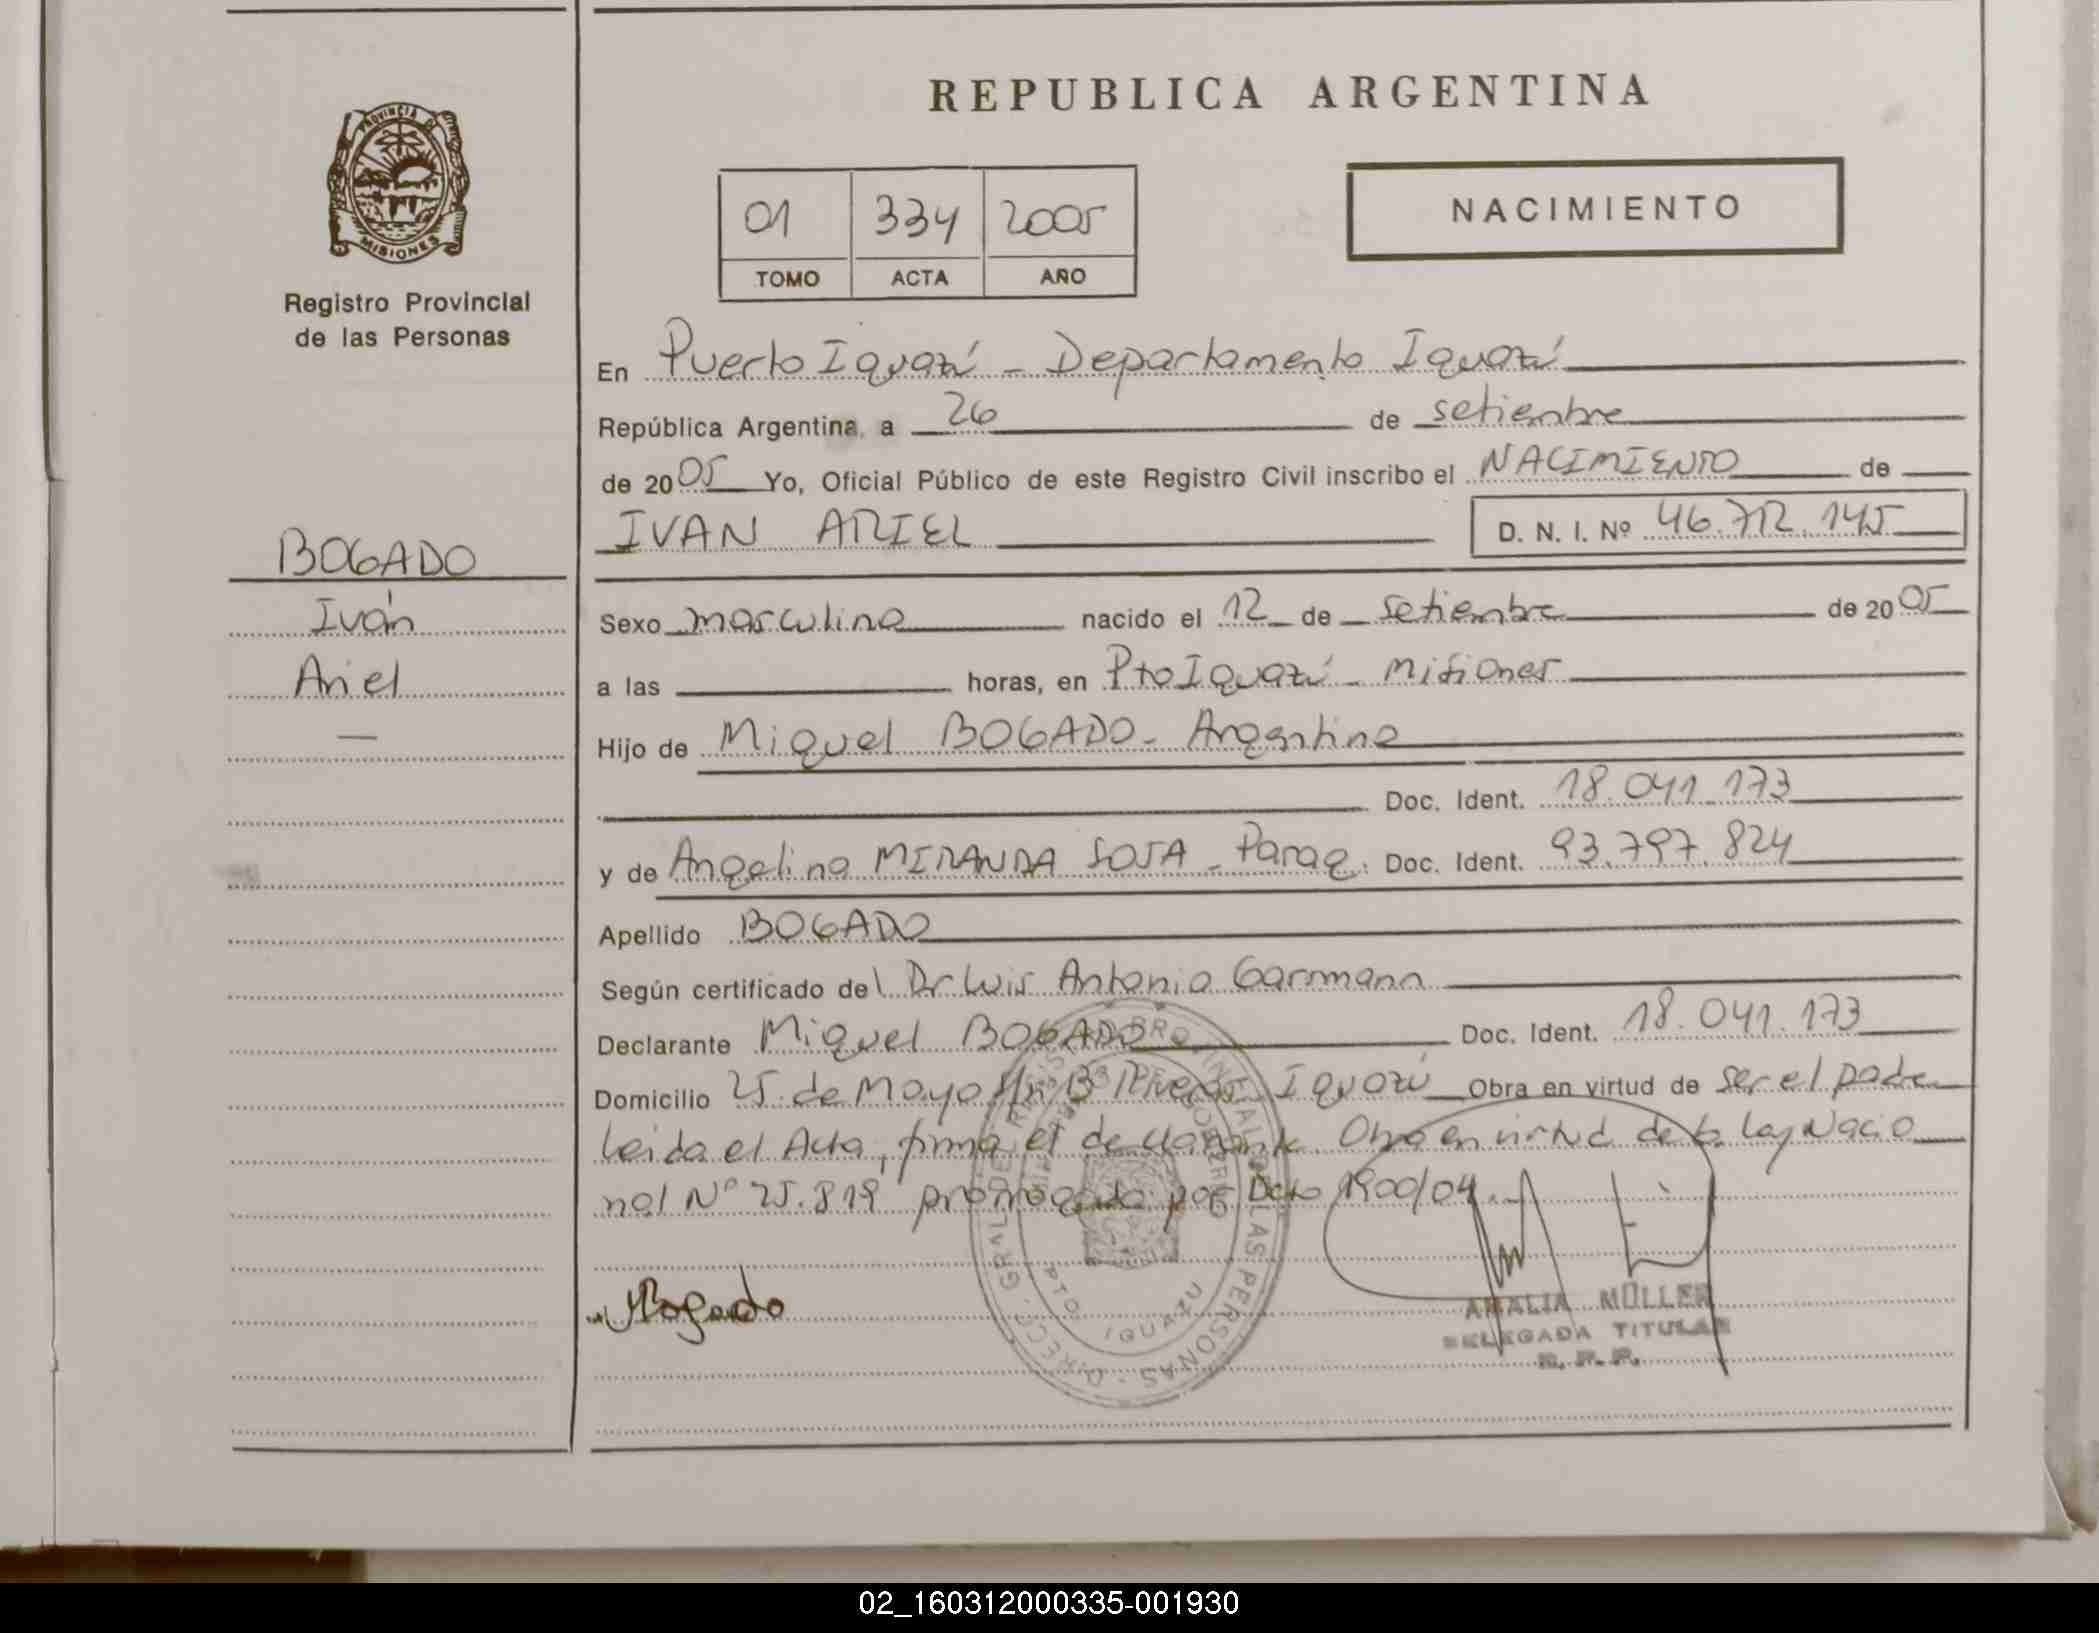 REPUBLICA ARGENTINA
PROVINCIA DE
MISIONES
Registro Provincial
de las Personas
01 334 2005
TOMO ACTA AÑO
NACIMIENTO
En Puerto Iguazú - Departamento Iguazú
República Argentina, a 26 de setiembre
de 2005 Yo, Oficial Público de este Registro Civil inscribo el NACIMIENTO de
IVAN ARIEL D. N. I. Nº 46.712.145
BOGADO
Iván
Ariel
—
Sexo masculino nacido el 12 de setiembre de 2005
a las horas, en Pto Iguazú - Misiones
Hijo de Miguel BOGADO - Argentino
Doc. Ident. 18.041.173
y de Angelina MIRANDA SOSA - Parag. Doc. Ident. 93.797.824
Apellido BOGADO
Según certificado del Dr Luis Antonio Garmann
Declarante Miguel BOGADO Doc. Ident. 18.041.173
Domicilio 25 de Mayo s/n B Iguazú Obra en virtud de ser el padre
Leida el Acta, firma el declarante. Obra en virtud de la Ley Nacio
nal Nº 25.819 prorrogada por Dcto 1900/04.
Bogado
PTO IGUAZU
AMALIA MÜLLER
DELEGADA TITULAR
R. P. P.
02_160312000335-001930